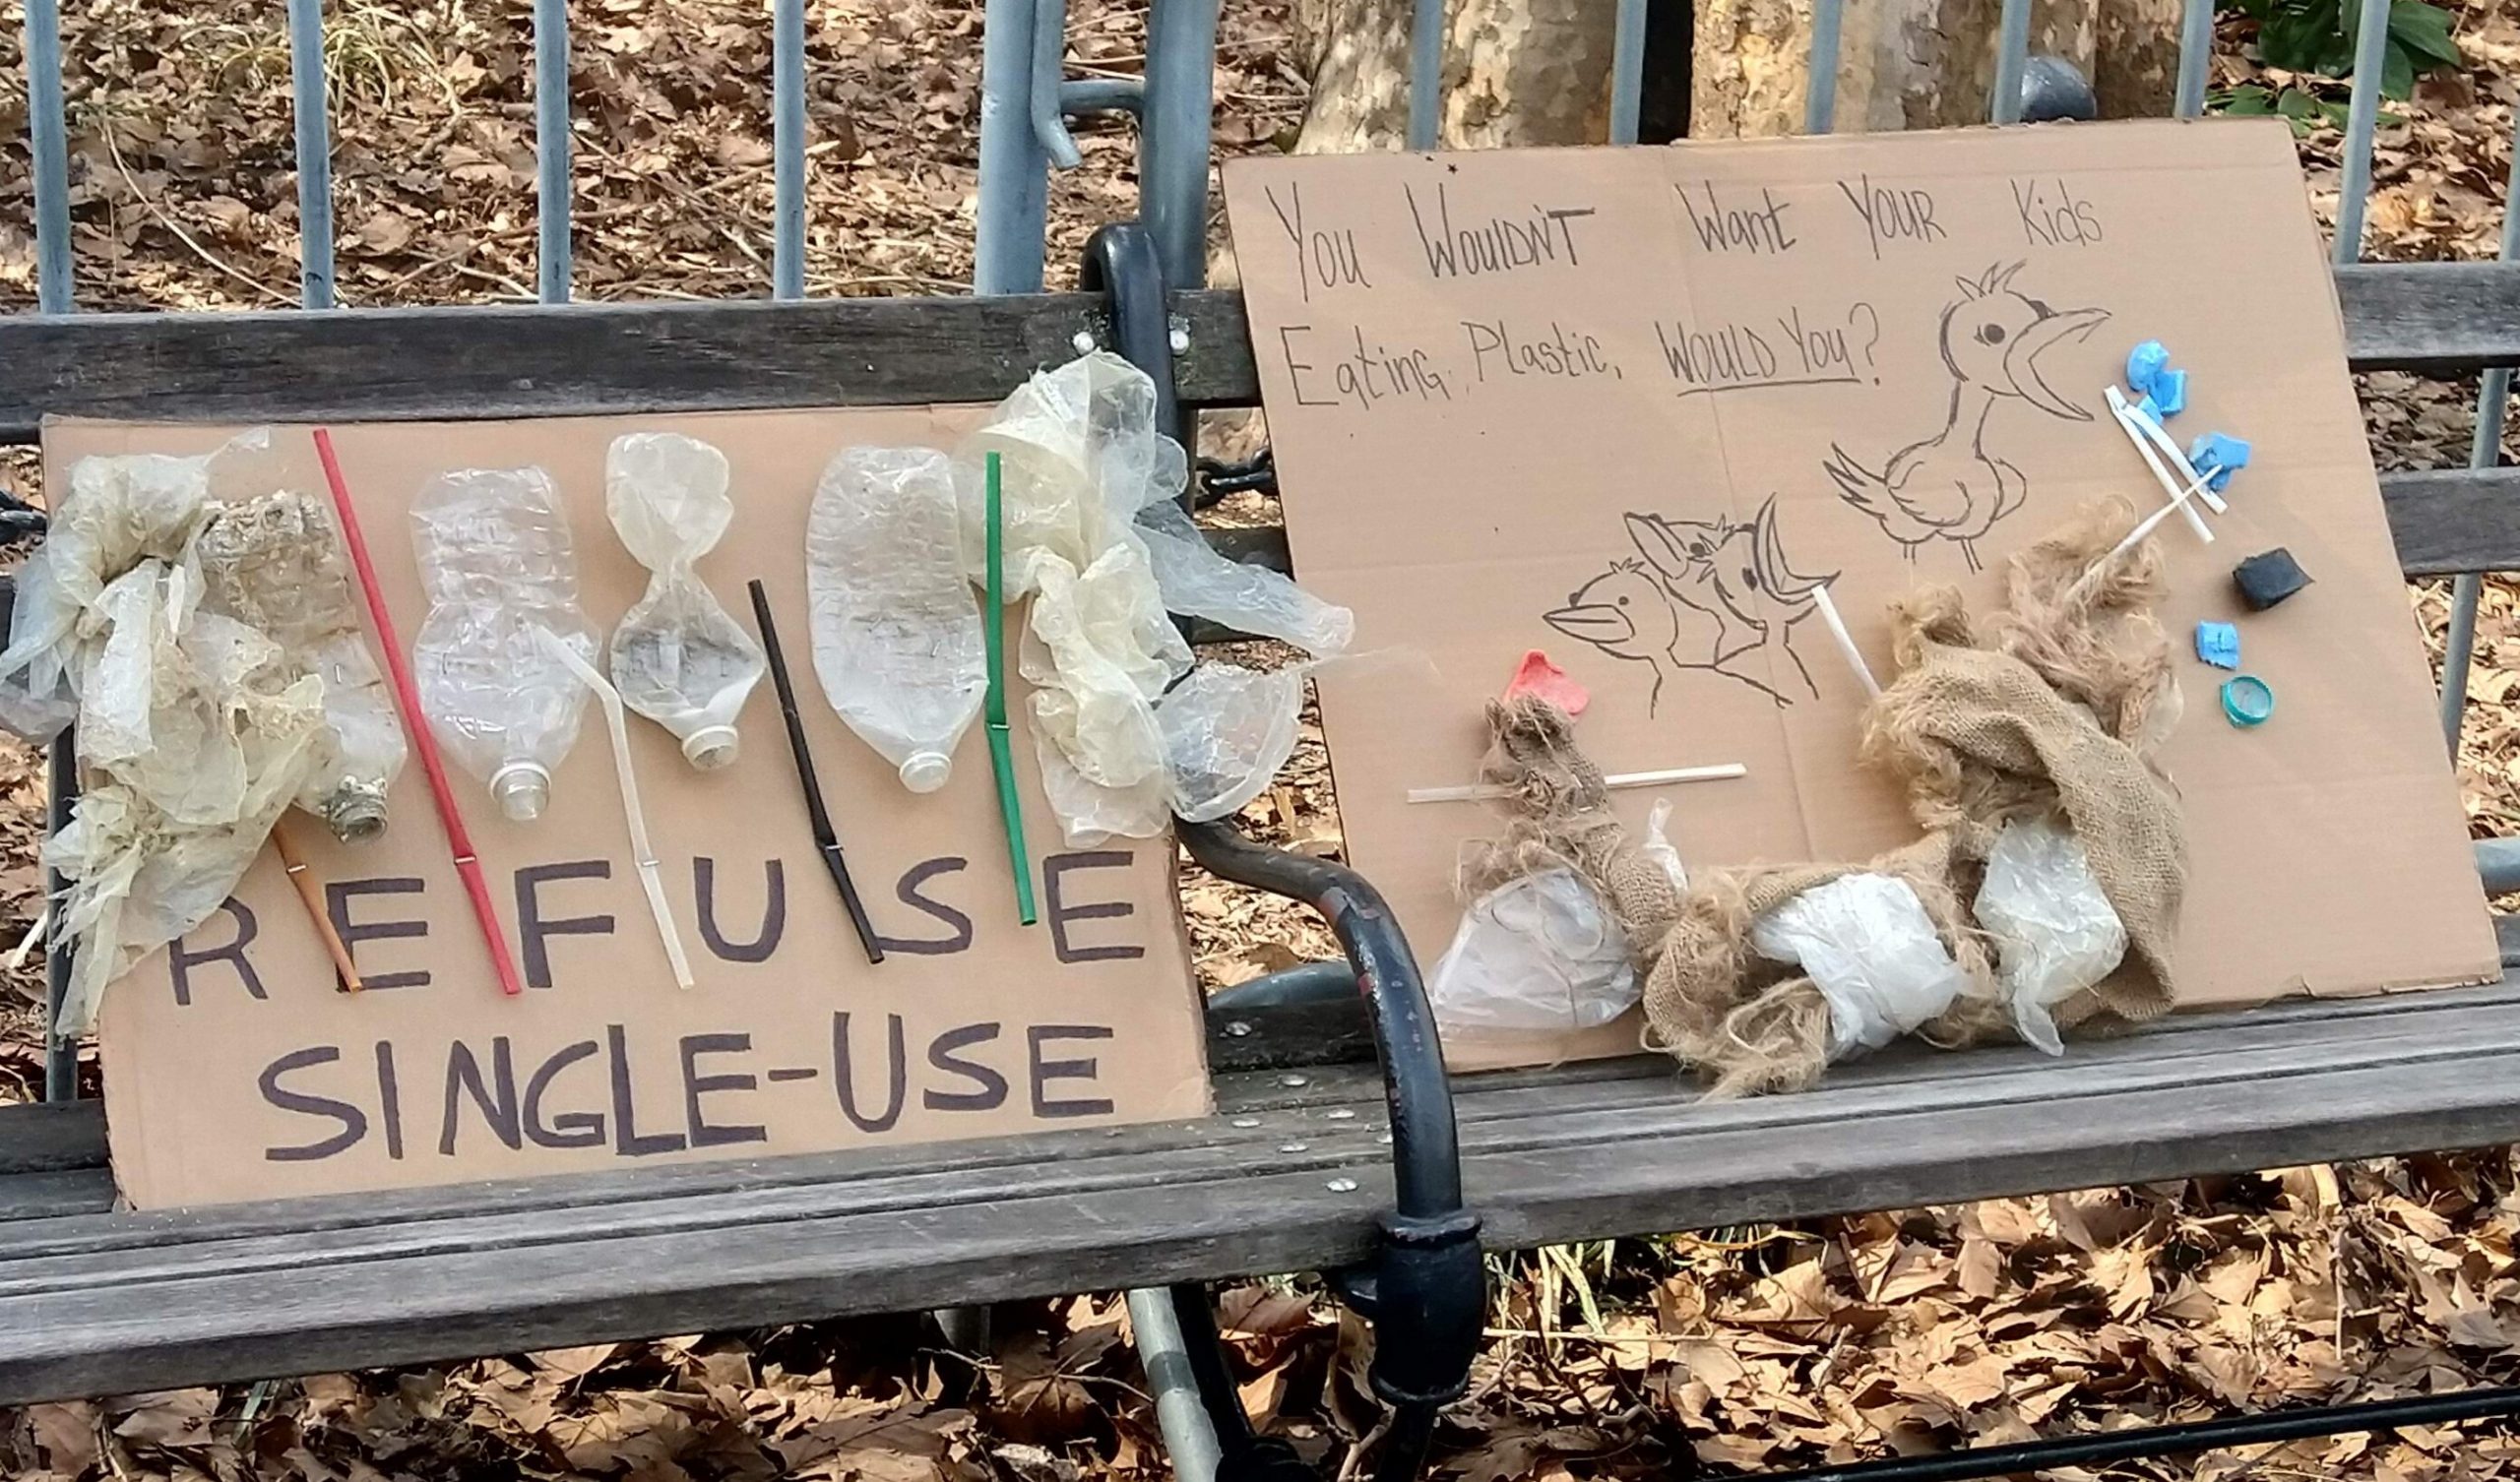 REFUSE
SINGLE-USE
You Wouldn't Want Your Kids
Eating Plastic, Would You?